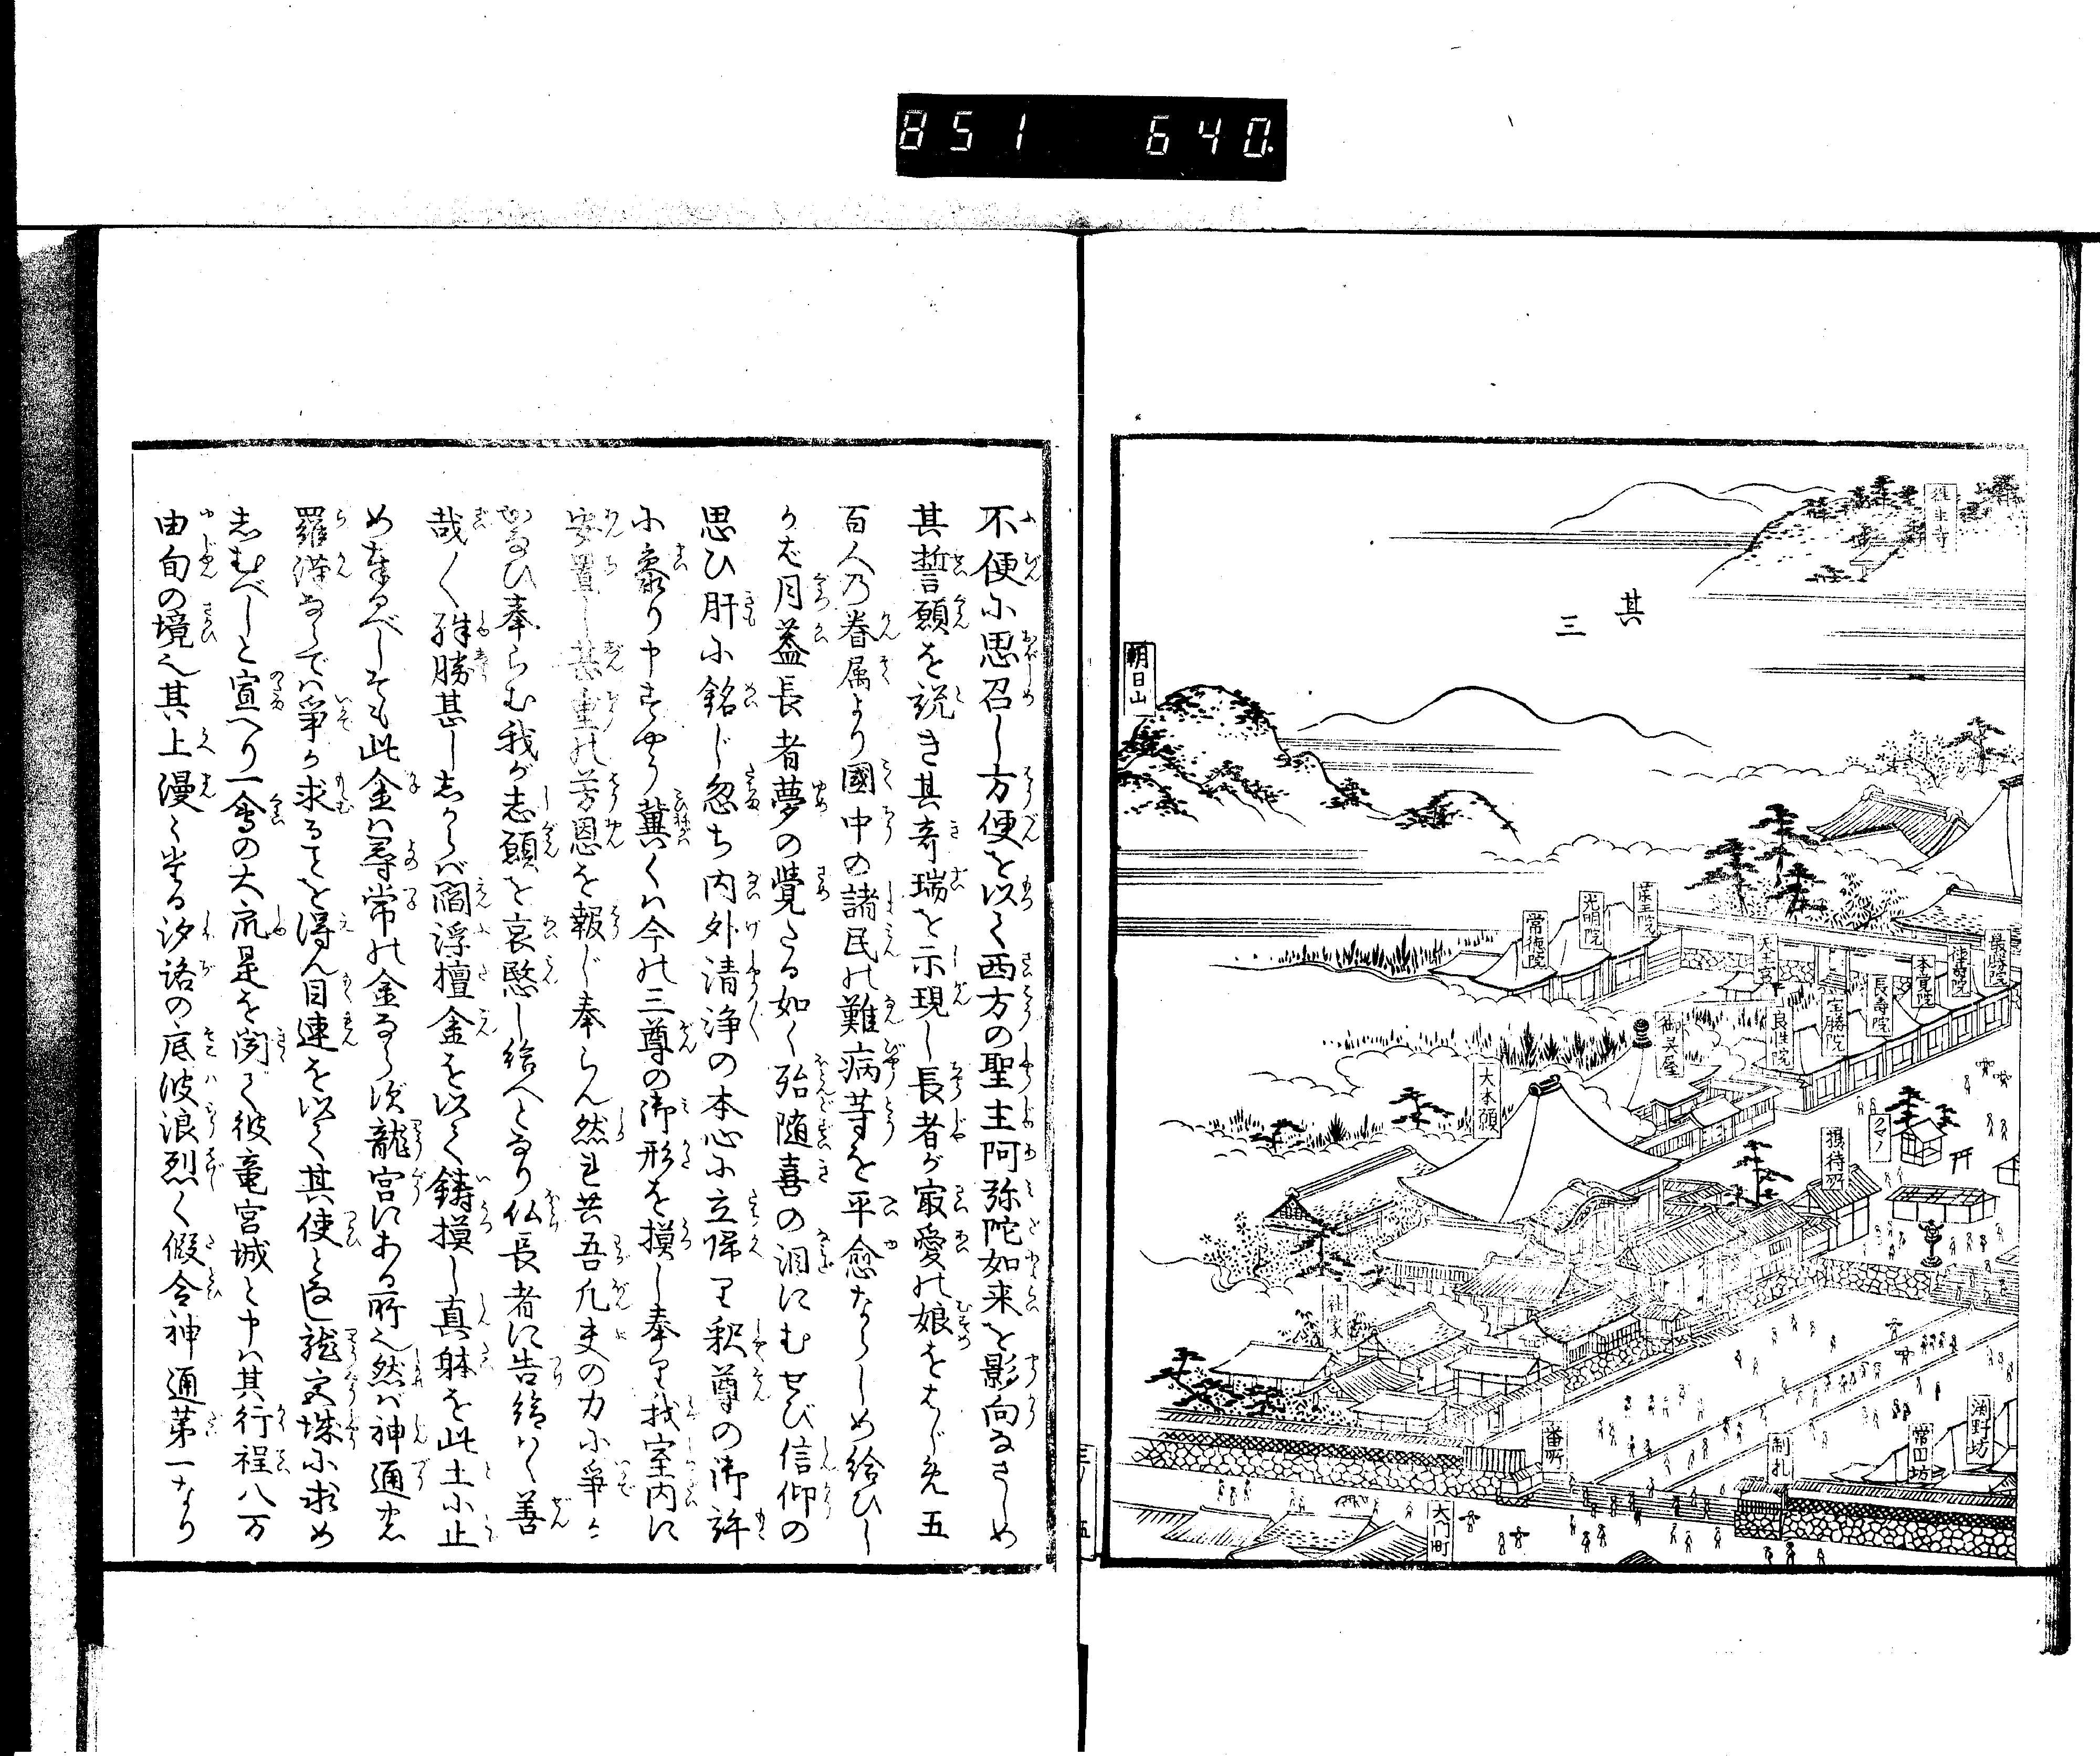 851 640
其
三
往生寺
朝日山
薬王院
光明院
常徳院
天王宮
最勝院
本覚院
長寿院
宝勝院
良性院
御供屋
大本願
クマノ
接待所
社家
番町
制札
常円坊
渕野坊
大門町
不便に思召し方便を以て西方の聖主阿弥陀如来を影向なさしめ
其誓願を説き其奇瑞を示現し長者が最愛の娘をはじめ五
百人の眷属より國中の諸民の難病等を平愈ならしめ給ひし
かば月蓋長者夢の覚たる如く殆随喜の涙にむせび信仰の
思ひ肝に銘じ忽ち内外清浄の本心に立帰り釈尊の御許
に参り申すやう冀くは今の三尊の御形を摸し奉り我室内に
安置し甚重の芳恩を報じ奉らん然れ共吾凡夫の力に争か
かなひ奉らむ我が志願を哀愍し給へとなり仏長者に告給はく善
哉く殊勝甚ししからば閻浮檀金を以て鋳摸し真躰を此土に止
め奉るべしそも此金は尋常の金ならず龍宮にある所也然ば神通の
羅漢ならでは争か求ることを得ん目連を以て其使となし龍宮城に求め
しむべしと宣へり一会の大衆是を聞て彼竜宮城と申は其行程八万
由旬の境也其上漫々たる汐路の底波浪烈く假令神通第一なり